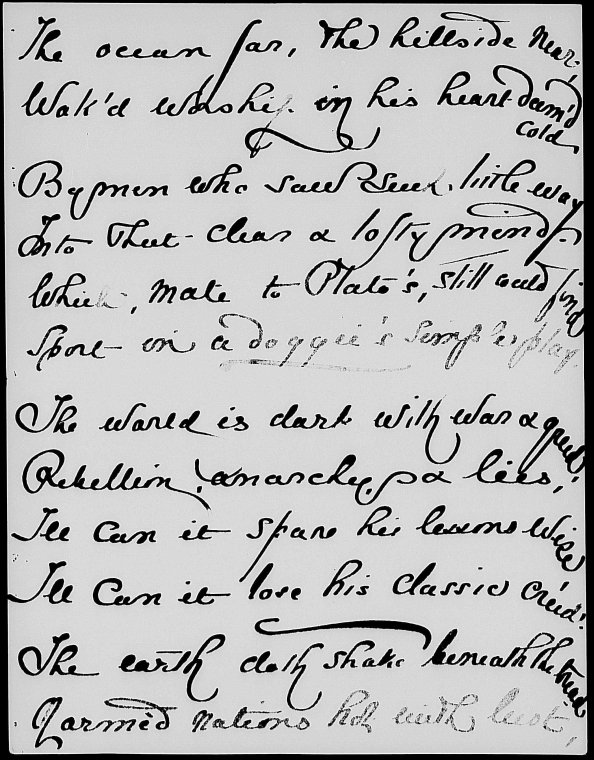 The ocean far, the hillside near,
Wak'd worship in his heart deem'd cold
By men who saw such little way
Into that clear & lofty mind
Which, mate to Plato's, still could find
Sport in a doggie's simple play.
The world is dark with war & greed,
Rebellion, anarchy, & lies,
Ill can it spare his lessons wise
Ill can it lose his classic creed!
The earth doth shake beneath the tread
Of armèd nations hot with lust,